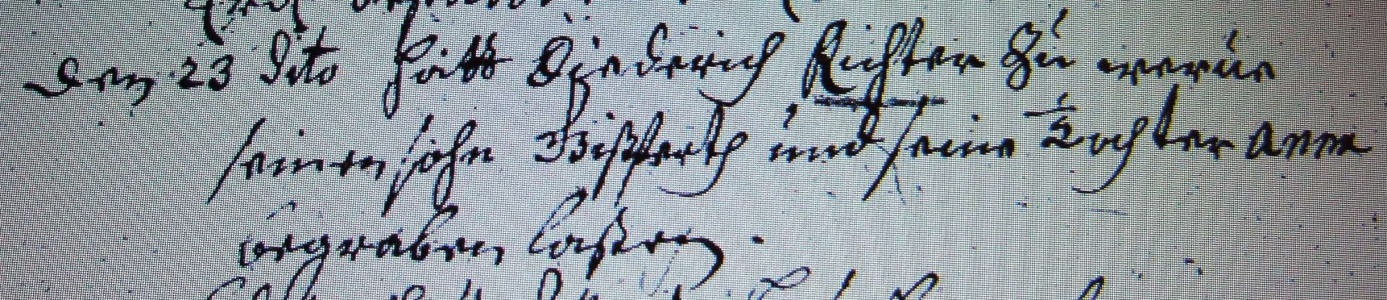 Den 23 dito hatt Diederich Richter zu werne
seinen sohn Gißberth und seine Tochter anna
begraben laßen.